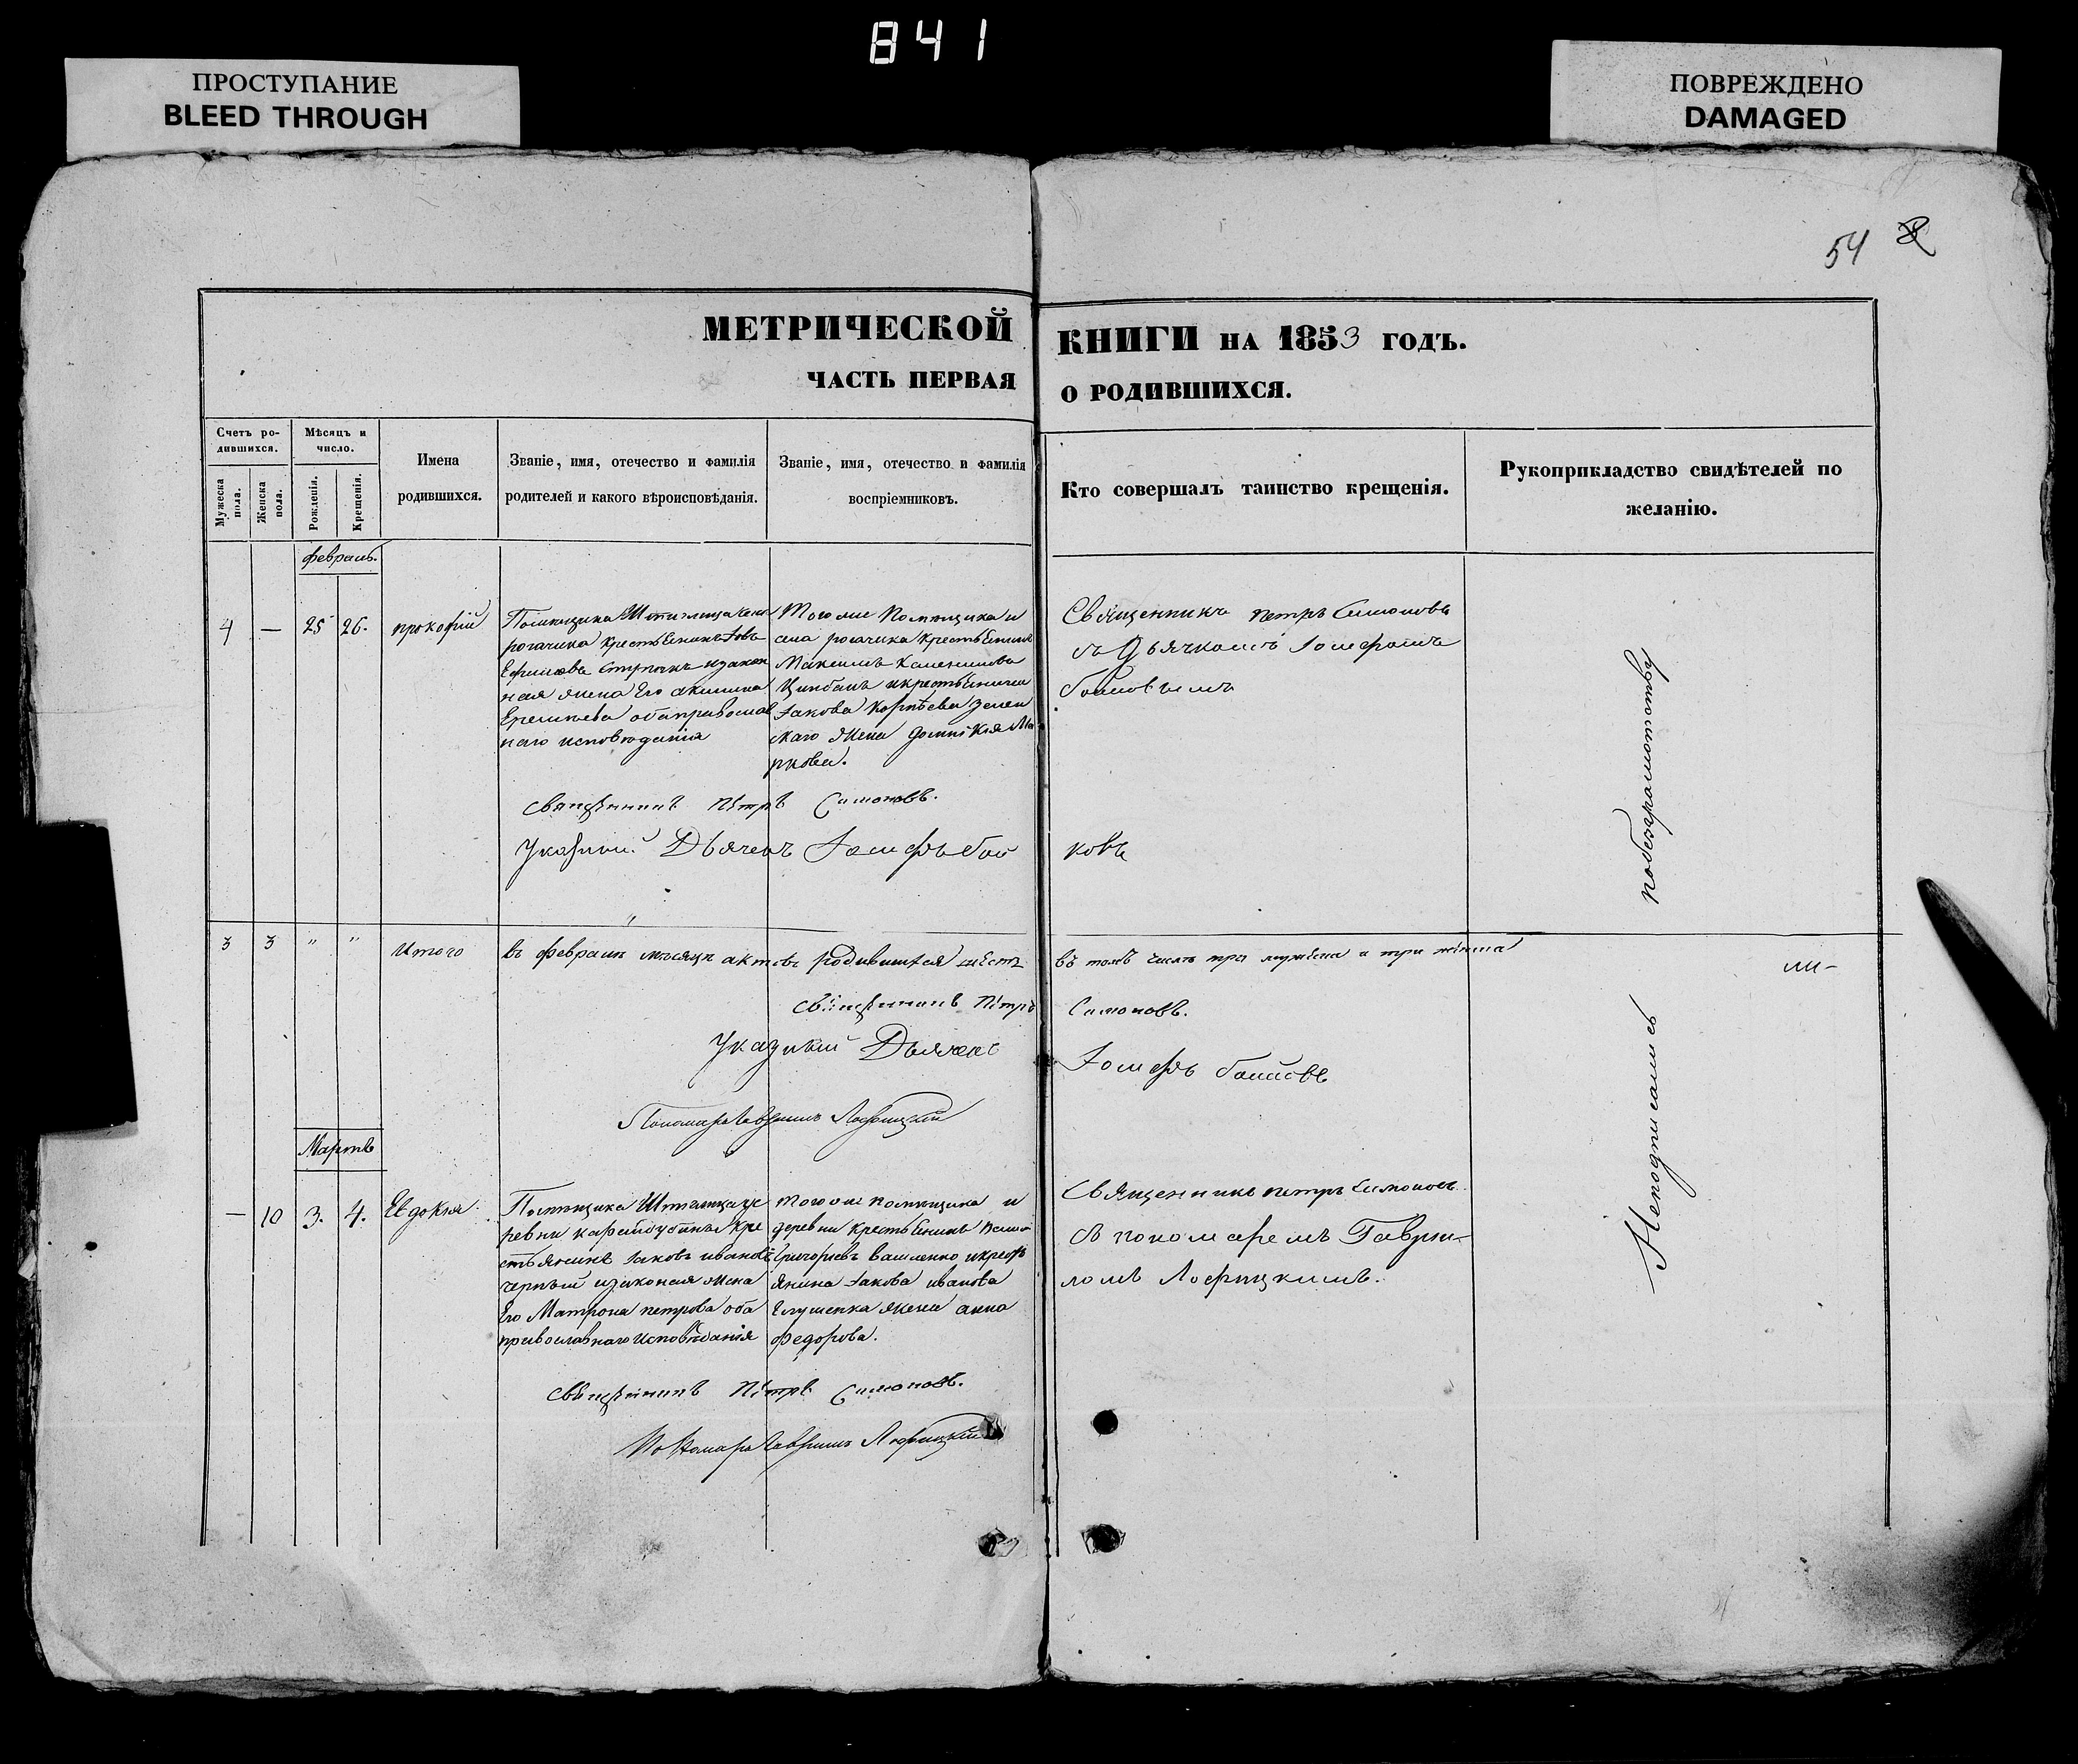 841
ПРОСТУПАНИЕ
BLEED THROUGH
ПОВРЕЖДЕНО
DAMAGED
54
МЕТРИЧЕСКОЙ
КНИГИ НА 1853 ГОДЪ.
ЧАСТЬ ПЕРВАЯ
О РОДИВШИХСЯ.
Счетъ ро-
дившихся.
Мужеска
пола.
Женска
пола.
Мѣсяцъ и
число.
Рожденія.
Крещенія.
Имена
родившихся.
Званіе, имя, отечество и фамилія
родителей и какого вѣроисповѣданія.
Званіе, имя, отечество и фамилія
воспріемниковъ.
Кто совершалъ таинство крещенія.
Рукоприкладство свидѣтелей по
желанію.
февраль.
4 — 25 26. прокофій
Помѣщика Штиглица села
рогачика крестьянинъ Іовъ
Ефимовъ изакон
ная жена Его акилина
Еремѣева обаправослав
наго исповѣданія
Тогоже Помѣщика и
села рогачика крестьянинъ
Максимъ
Цимбалъ икрестьянина
Іакова Корнѣева
жена
ркова.
Священникъ петръ Симоновъ
съ Дьячкомъ Іосифомъ
Священникъ Петръ Симоновъ.
Указный Дьячекъ Іосифъ Бой
ковъ
побезграмотству
3 3 " " Итого въ февралѣ мѣсяцѣ актовъ родившихся шесть
въ томъ числѣ три мужеска и три женска
Священникъ Петръ Симоновъ.
Указный Дьячекъ Іосифъ Бойковъ
Пономарь Гавріилъ Лофицкій
ли-
Неподписались
Мартъ
— 10 3. 4. Евдокія.
Помѣщика Штиглица де
ревни кре
стьянинъ Іаковъ ивановъ
черный изаконая жена
Его Матрона петрова оба
православнаго исповѣданія
тогоже помѣщика и
деревни крестьянинъ
Григорьевъ вашенко икресть
янина Іакова иванова
Глущенка жена анна
федорова.
Священникъ петръ Симоновъ
съ пономаремъ Гаврі-
ломъ Лофицкимъ.
Священникъ Петръ Симоновъ.
Пономарь Гавріилъ Лофицкій